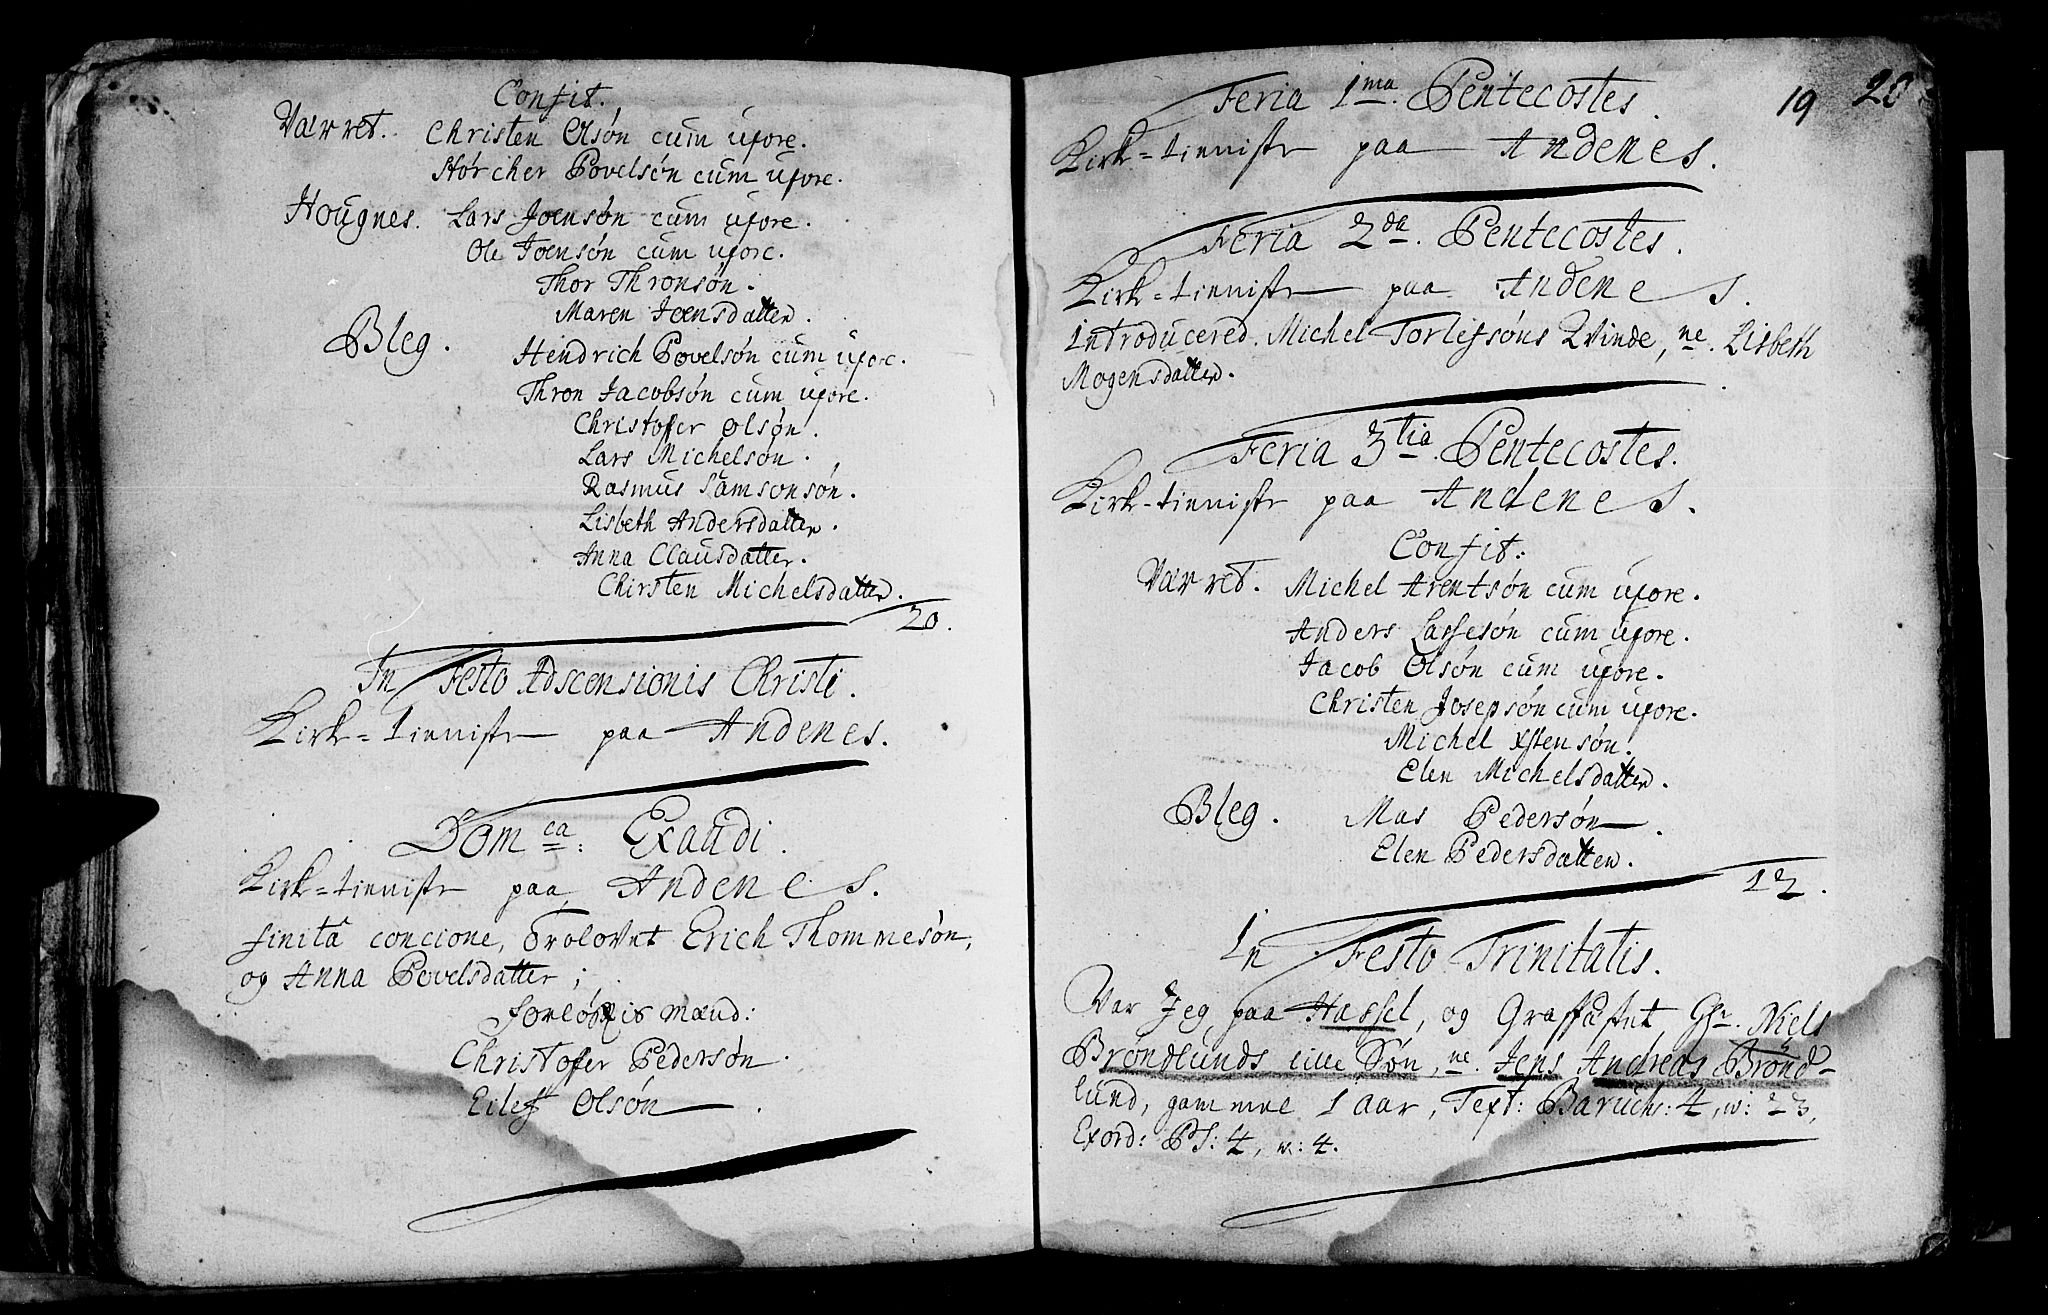 Confit.
Værret. Christen Olsøn cum uxore.
Hørcher Povelsøn cum uxore.
Hougnes. Lars Joensøn cum uxore.
Ole Joensøn cum uxore.
Thor Thronsøn.
Maren Joensdatter.
Bleg. Hendrich Povelsøn cum uxore.
Thron Jacobsøn cum uxore.
Christofer Olsøn.
Lars Michelsøn.
Rasmus Samsonsøn.
Lisbeth Andersdatter.
Anna Clausdatter.
Chirsten Michelsdatter.
20.
In Festo Adscensionis Christi.
Kirk-tienniste paa Andenes.
Dom ca: Exaudi.
Kirk-tienniste paa Andenes.
finitâ concione, trolovet Erich Thommesøn,
og Anna Povelsdatter;
forløftis mænd:
Christofer Pedersøn.
Eilef Olsøn.
19 20
Feria 1ma. Pentecostes.
Kirk-tienniste paa Andenes.
Feria 2da. Pentecostes.
Kirk-tienniste paa Andenes.
introducered. Michel Torlefsøns Qvinde, ne. Lisbeth
Mogensdatter.
Feria 3tia Pentecostes.
Kirk-tienniste paa Andenes.
Confit:
Værret. Michel Arentsøn cum uxore.
Anders Lassesøn cum uxore.
Jacob Olsøn cum uxore.
Christen Josepsøn cum uxore.
Michel Østensøn.
Elen Michelsdatter.
Bleg. Mas Pedersøn.
Elen Pedersdatter.
12.
In Festo Trinitatis.
Var Jeg paa Hassel, og Graffästet Hr. Niels
Brøndlunds lille Søn, ne. Jens Andreas Brønd-
lund, gammel 1 aar, Text: Baruch: 4, v: 23,
Exord: Ps: 4, v: 4.